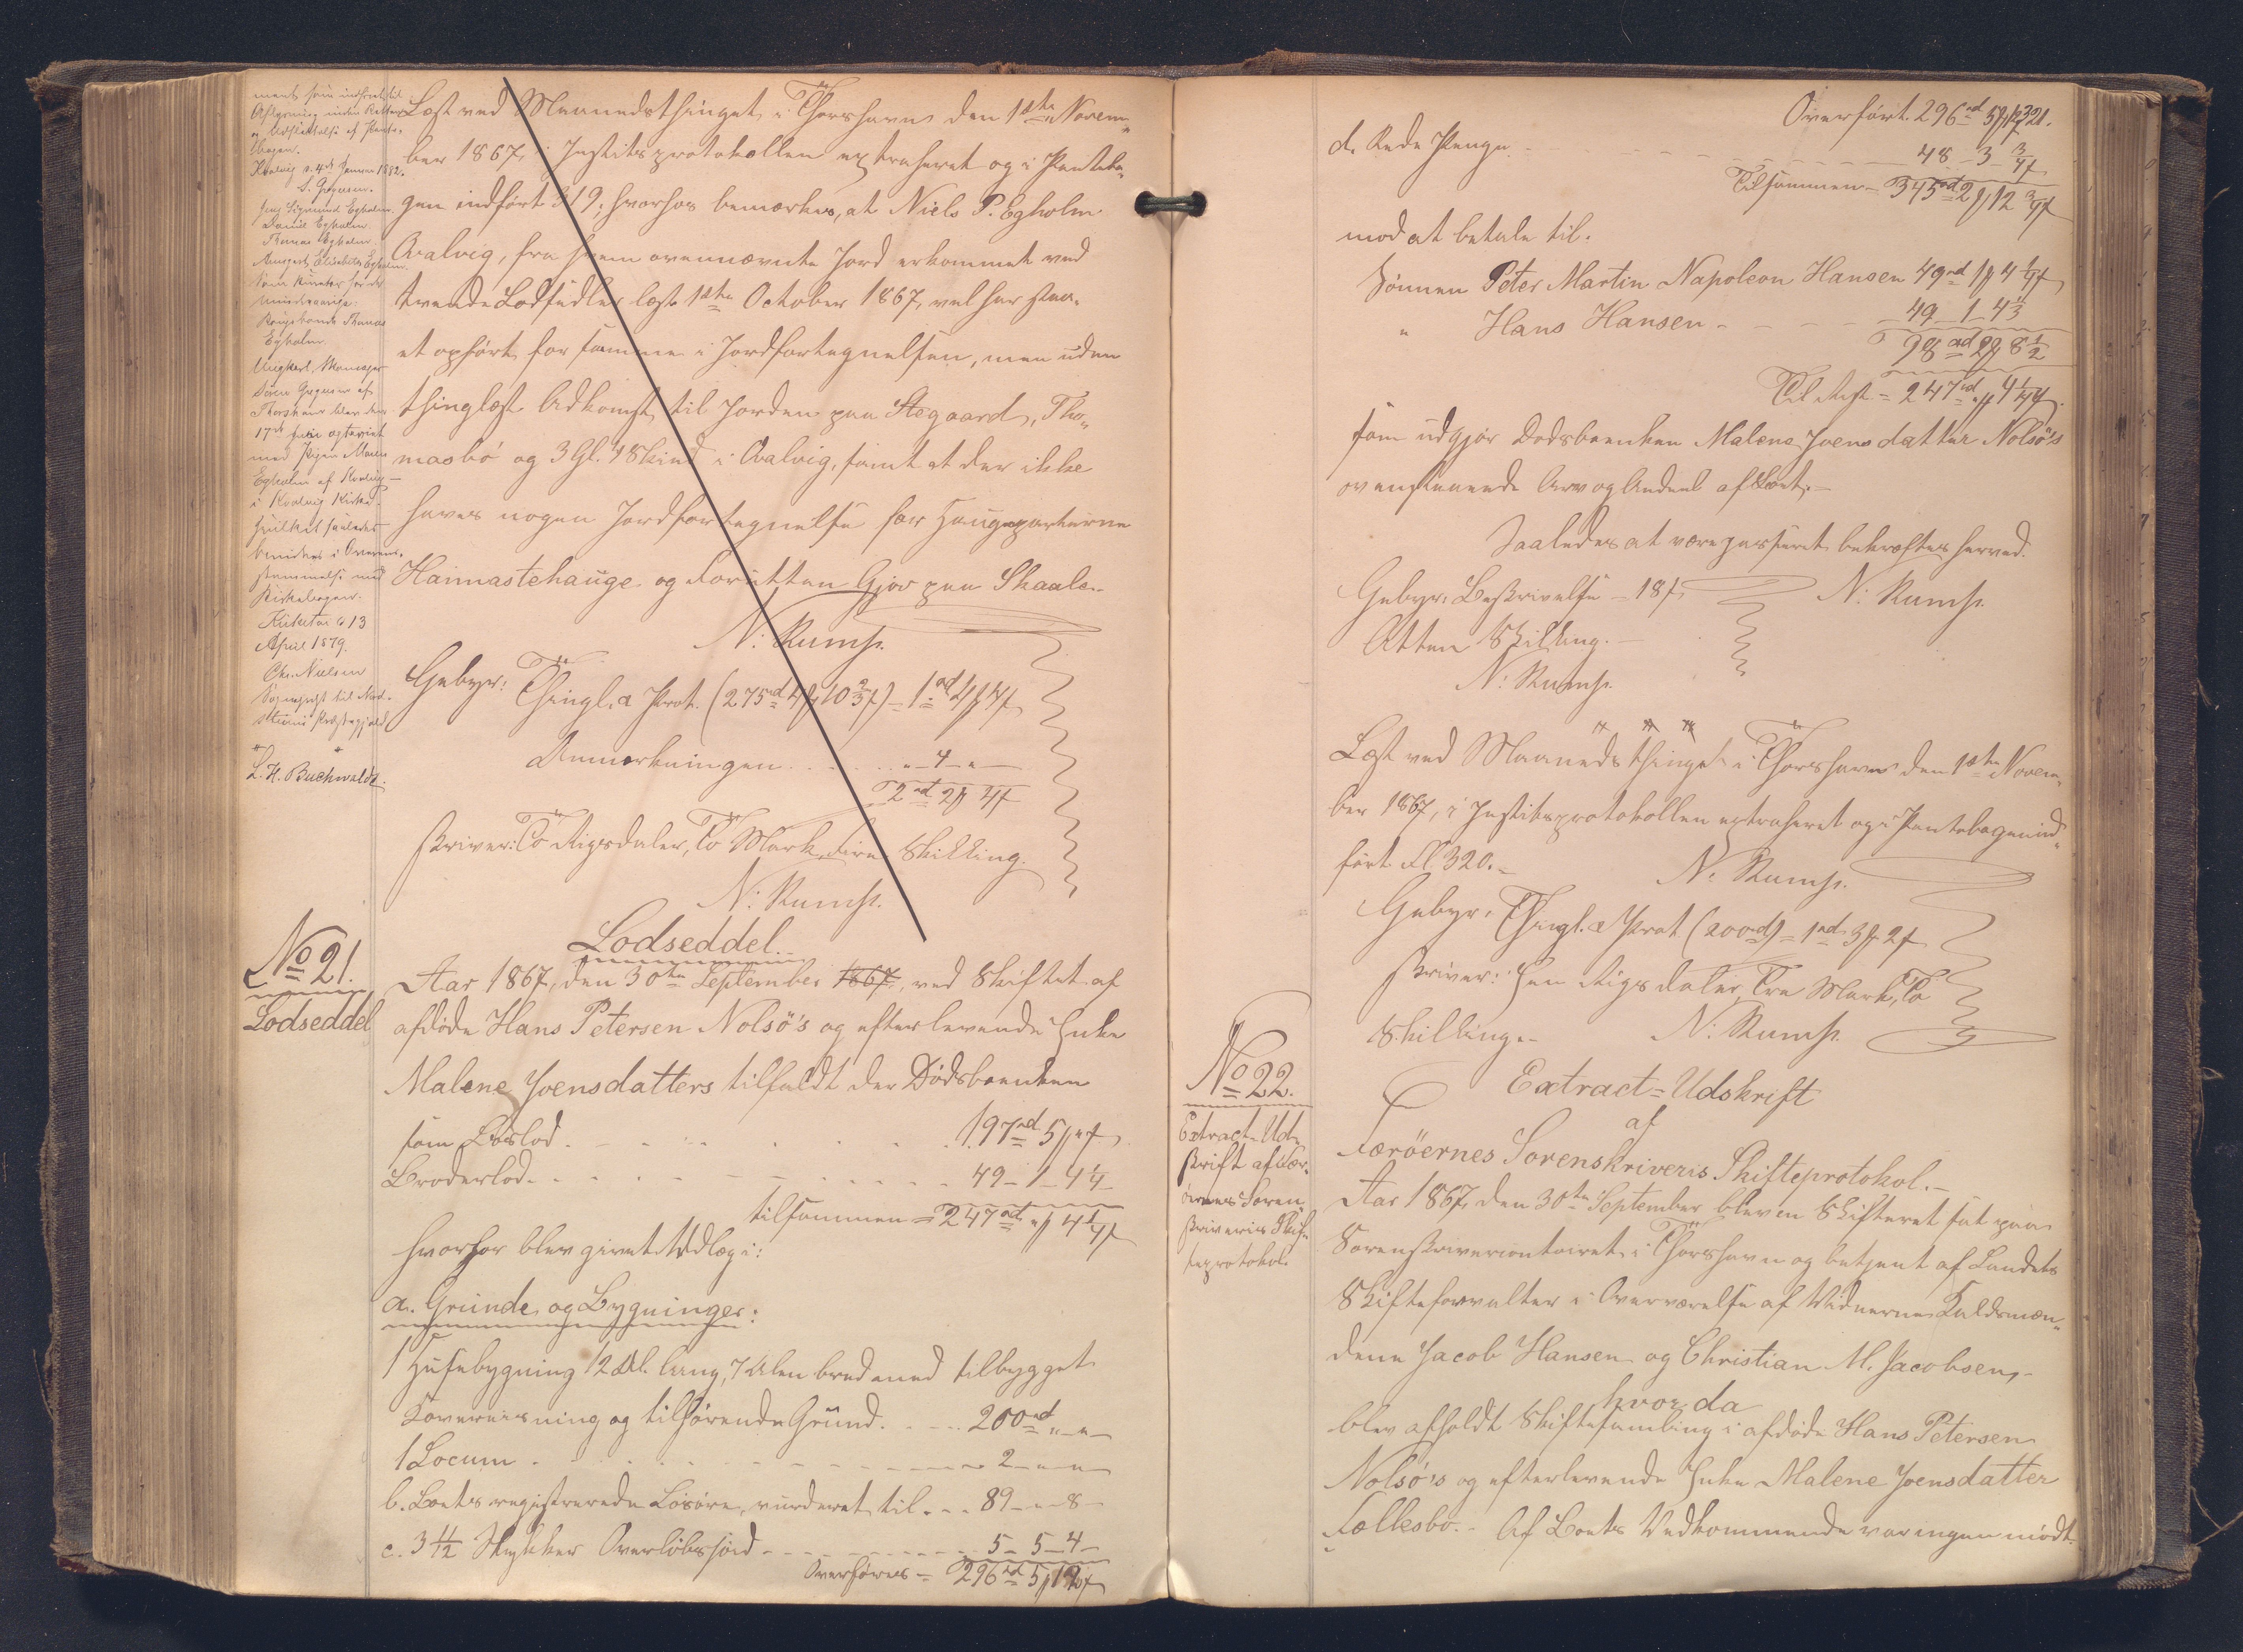 ment som indført til
Aflysning inden Retten
og Udslettelse af Pante-
bogen.
Kvalvig d. 4de Januar 1882.
S. Gregersen.
Jens Sigmund Egholm.
Daniel Egholm.
Thomas Egholm.
Elisabeth Egholm.
som Kurator for de
umyndige:
Kongsbonde Thomas
Egholm.
Ungkarl,
Sören Gregersen af
Thorshavn blev den
17de
med Pigen
Egholm af Kvalvig
i Kvalvig Kirke
hvilket saaledes
bevidnes i Overens-
stemmelse med
Kirkebogen.
13
April 1879.
Chr. Nielsen
Sognepræst til Nord-
strømø Præstegjæld
L. H. Buchwaldt.
Læst ved Maanedsthinget i Thorshavn den 1ste Novem-
ber 1867, i Justitsprotokollen extraheret og i Pantebo-
gen indført 319; hvorhos bemærkes, at Niels P. Egholm
Qvalvig, fra hvem ovennævnte Jord erkommet ved
tvende Lodsedler læst 1ste October 1867, vel har staa-
et opført for samme i Jordfortegnelsen, men uden
thinglæst Adkomst til Jorden paa Stegaard, Tho-
masbö og 3 Gl. 4 Skind i Qvalvig, samt at der ikke
haves nogen Jordfortegnelse for Haugeparterne
Haimastehauge og Forütten Gjov paa Skaale.
N: Rump.
Gebyr: Thingl. a Prot. (275rd 4 10 2/3 ß) = 1rd 4 4ß
Anmerkningen . . . . " - 4 - "
2rd 2 4ß
skriver: To Rigsdaler, To Mark, fire Skilling.
N: Rump.
No 21.
Lodseddel
Lodseddel.
Aar 1867, den 30te September 1867, ved Skiftet af
afdøde Hans Petersen Nolsö's og efterlevende Enke
Malene Joensdatters tilfaldt der Dødsboenken
som Boslod . . . . . . 197rd 5 " ß
Broderlod . . . . . . 49 - 1 - 4 1/4
tilsammen = 247rd " 4 1/4 ß
hvorfor blev givet Udlæg i:
a. Grunde og Bygninger:
1 Husebygning 12 Al. lang, 7 Alen bred med tilbygget
og tilhørende Grund . . . . 200rd " - "
1 Locum . . . . . . 2 - " - "
b. Boets registrerede Løsøre, vurderet til . . . 89 - " - 8
c. 3 1/2 Stykker . . . . . 5 - 5 - 4
Overføres = 296rd 5 12ß
321.
Overført 296rd 5 12ß
d. Rede Penge . . . . . . 48 - 3 3/4 ß
Tilsammen = 345rd 2 12 3/4 ß
mod at betale til:
Sønnen Peter Martin Napoleon Hansen 49rd 1 4 1/4 ß
" Hans Hansen . . . . . 49 - 1 - 4 1/4
98rd 2 8 1/2
Til Rest = 247rd " 4 1/4 ß
som udgjør Dødsboenken Malene Joensdatter Nolsö's
ovenstaaende Arv og Andeel af Boet.
Saaledes at være passeret bekræftes herved.
Gebyr: Beskrivelse = 18ß N: Rump.
Atten Skilling.
N: Rump.
Læst ved Maanedsthinget i Thorshavn den 1ste Novem-
ber 1867, i Justitsprotokollen extraheret og i Pantebogen ind-
ført Fl. 320. N: Rump.
Gebyr: Thingl. a Prot (200rd) = 1rd 3 2ß
skriver: Een Rigsdaler, Tre Mark, To
Skilling. N: Rump.
No 22.
Extract-Ud-
skrift af Fær-
öernes Soren-
skriveris Skif-
teprotokol.
Extract-Udskrift
af
Færöernes Sorenskriveris Skifteprotokol.
Aar 1867, den 30te September blev en Skifteret sat paa
Sorenskrivercontoiret i Thorshavn og betjent af Landets
Skifteforvalter i Overværelse af Vidnerne Kaldsmæn-
dene Jacob Hansen og Christian M. Jacobsen,
hvor da
blev afholdt Skiftesamling i afdøde Hans Petersen
Nolsö's og efterlevende Enke Malene Joensdatter
Fællesbo. Af Boets Vedkommende var ingen mødt.